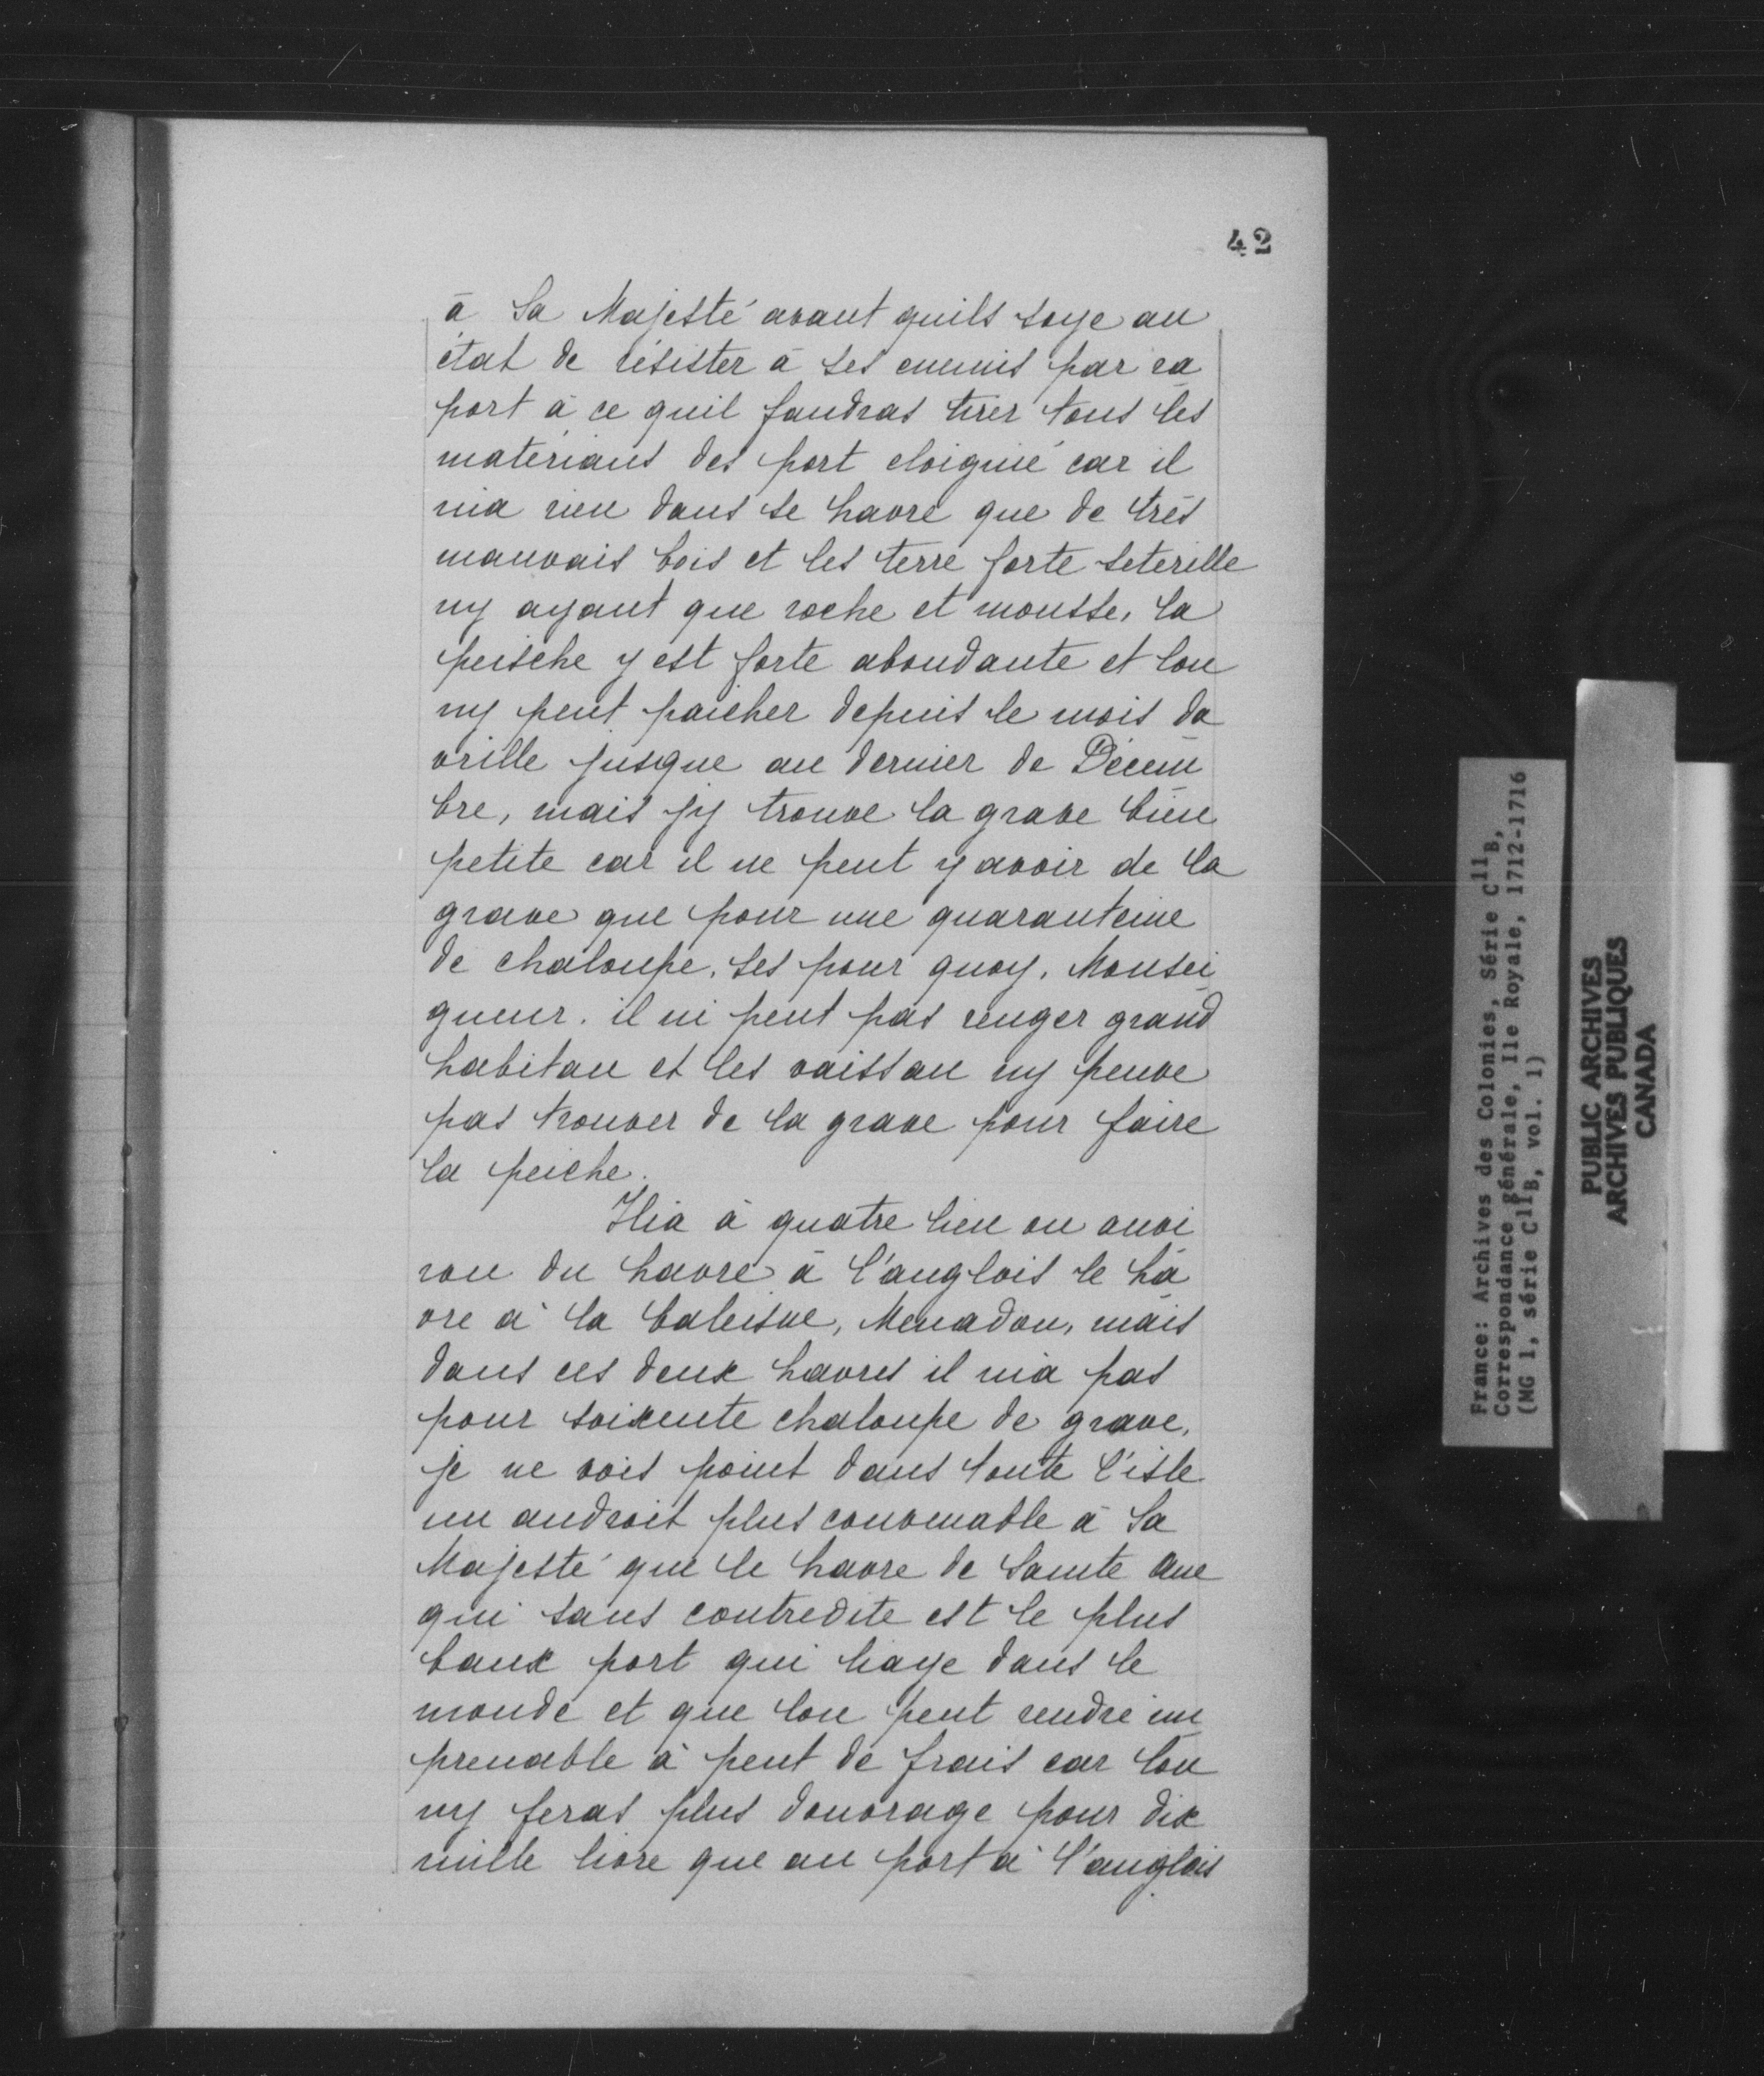 42
à Sa Majesté avant quils soye au
état de résister à ses enemis par ra
port à ce quil faudras tirer tous les
matériaus des port eloignié car il
nia rien dans se havre que de très
mauvais bois et les terre forte seterille
ny ayant que roche et mousse, la
peische y est forte abondante et lon
ny peut paicher depuis le mois da
vrille jusque au dernier de Décem
bre, mais jy trouve la grave bien
petite car il ne peut y avoir de la
grave que pour une quaranteine
de chaloupe, ses pour quoy, Monsei
gneur. il ni peut pas renger grand
habitau et les vaissau ny peuve
pas trouver de la grave pour faire
la peiche.
Ilia à quatre lieu ou anvi
ron du havre à l'anglois le hâ
vre à la baleisne, Menadou, mais
dans ces deux havres il nia pas
pour soixente chaloupe de grave,
je ne vois point dans toute l'isle
un androit plus convenable à Sa
Majesté que le havre de Sainte Ane
qui sans contredite est le plus
baux port qui liaye dans le
monde et que lon peut rendre im
prenable à peut de frais car lon
ny feras plus douvrage pour dix
mille livre que au port à l'anglois
France: Archives des Colonies, Série C11B,
Correspondance générale, Ile Royale, 1712-1716
(MG 1, série C11B, vol. 1)
PUBLIC ARCHIVES
ARCHIVES PUBLIQUES
CANADA